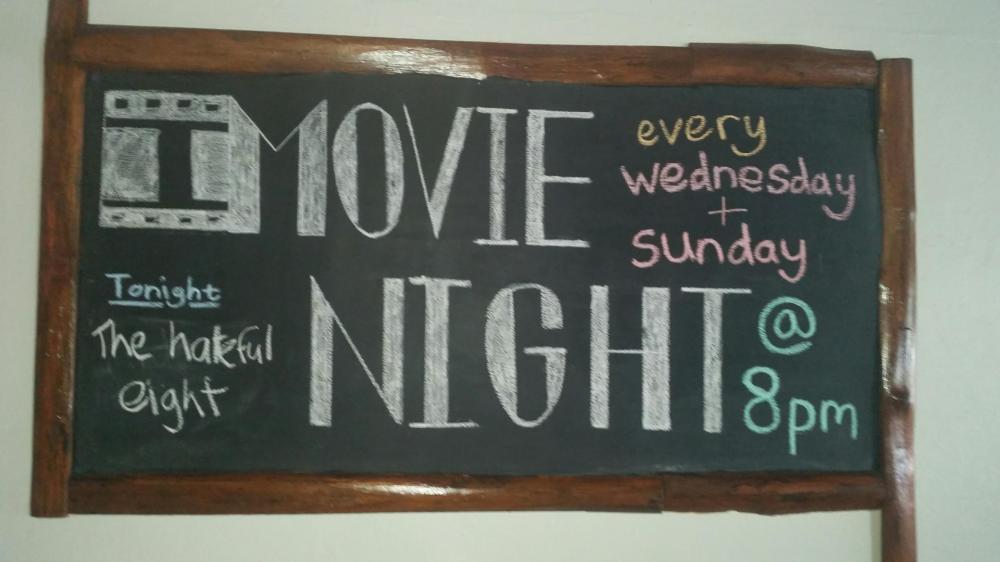 MOVIE
NIGHT
every
wednesday
+
sunday
@
8pm
Tonight
The hateful
eight